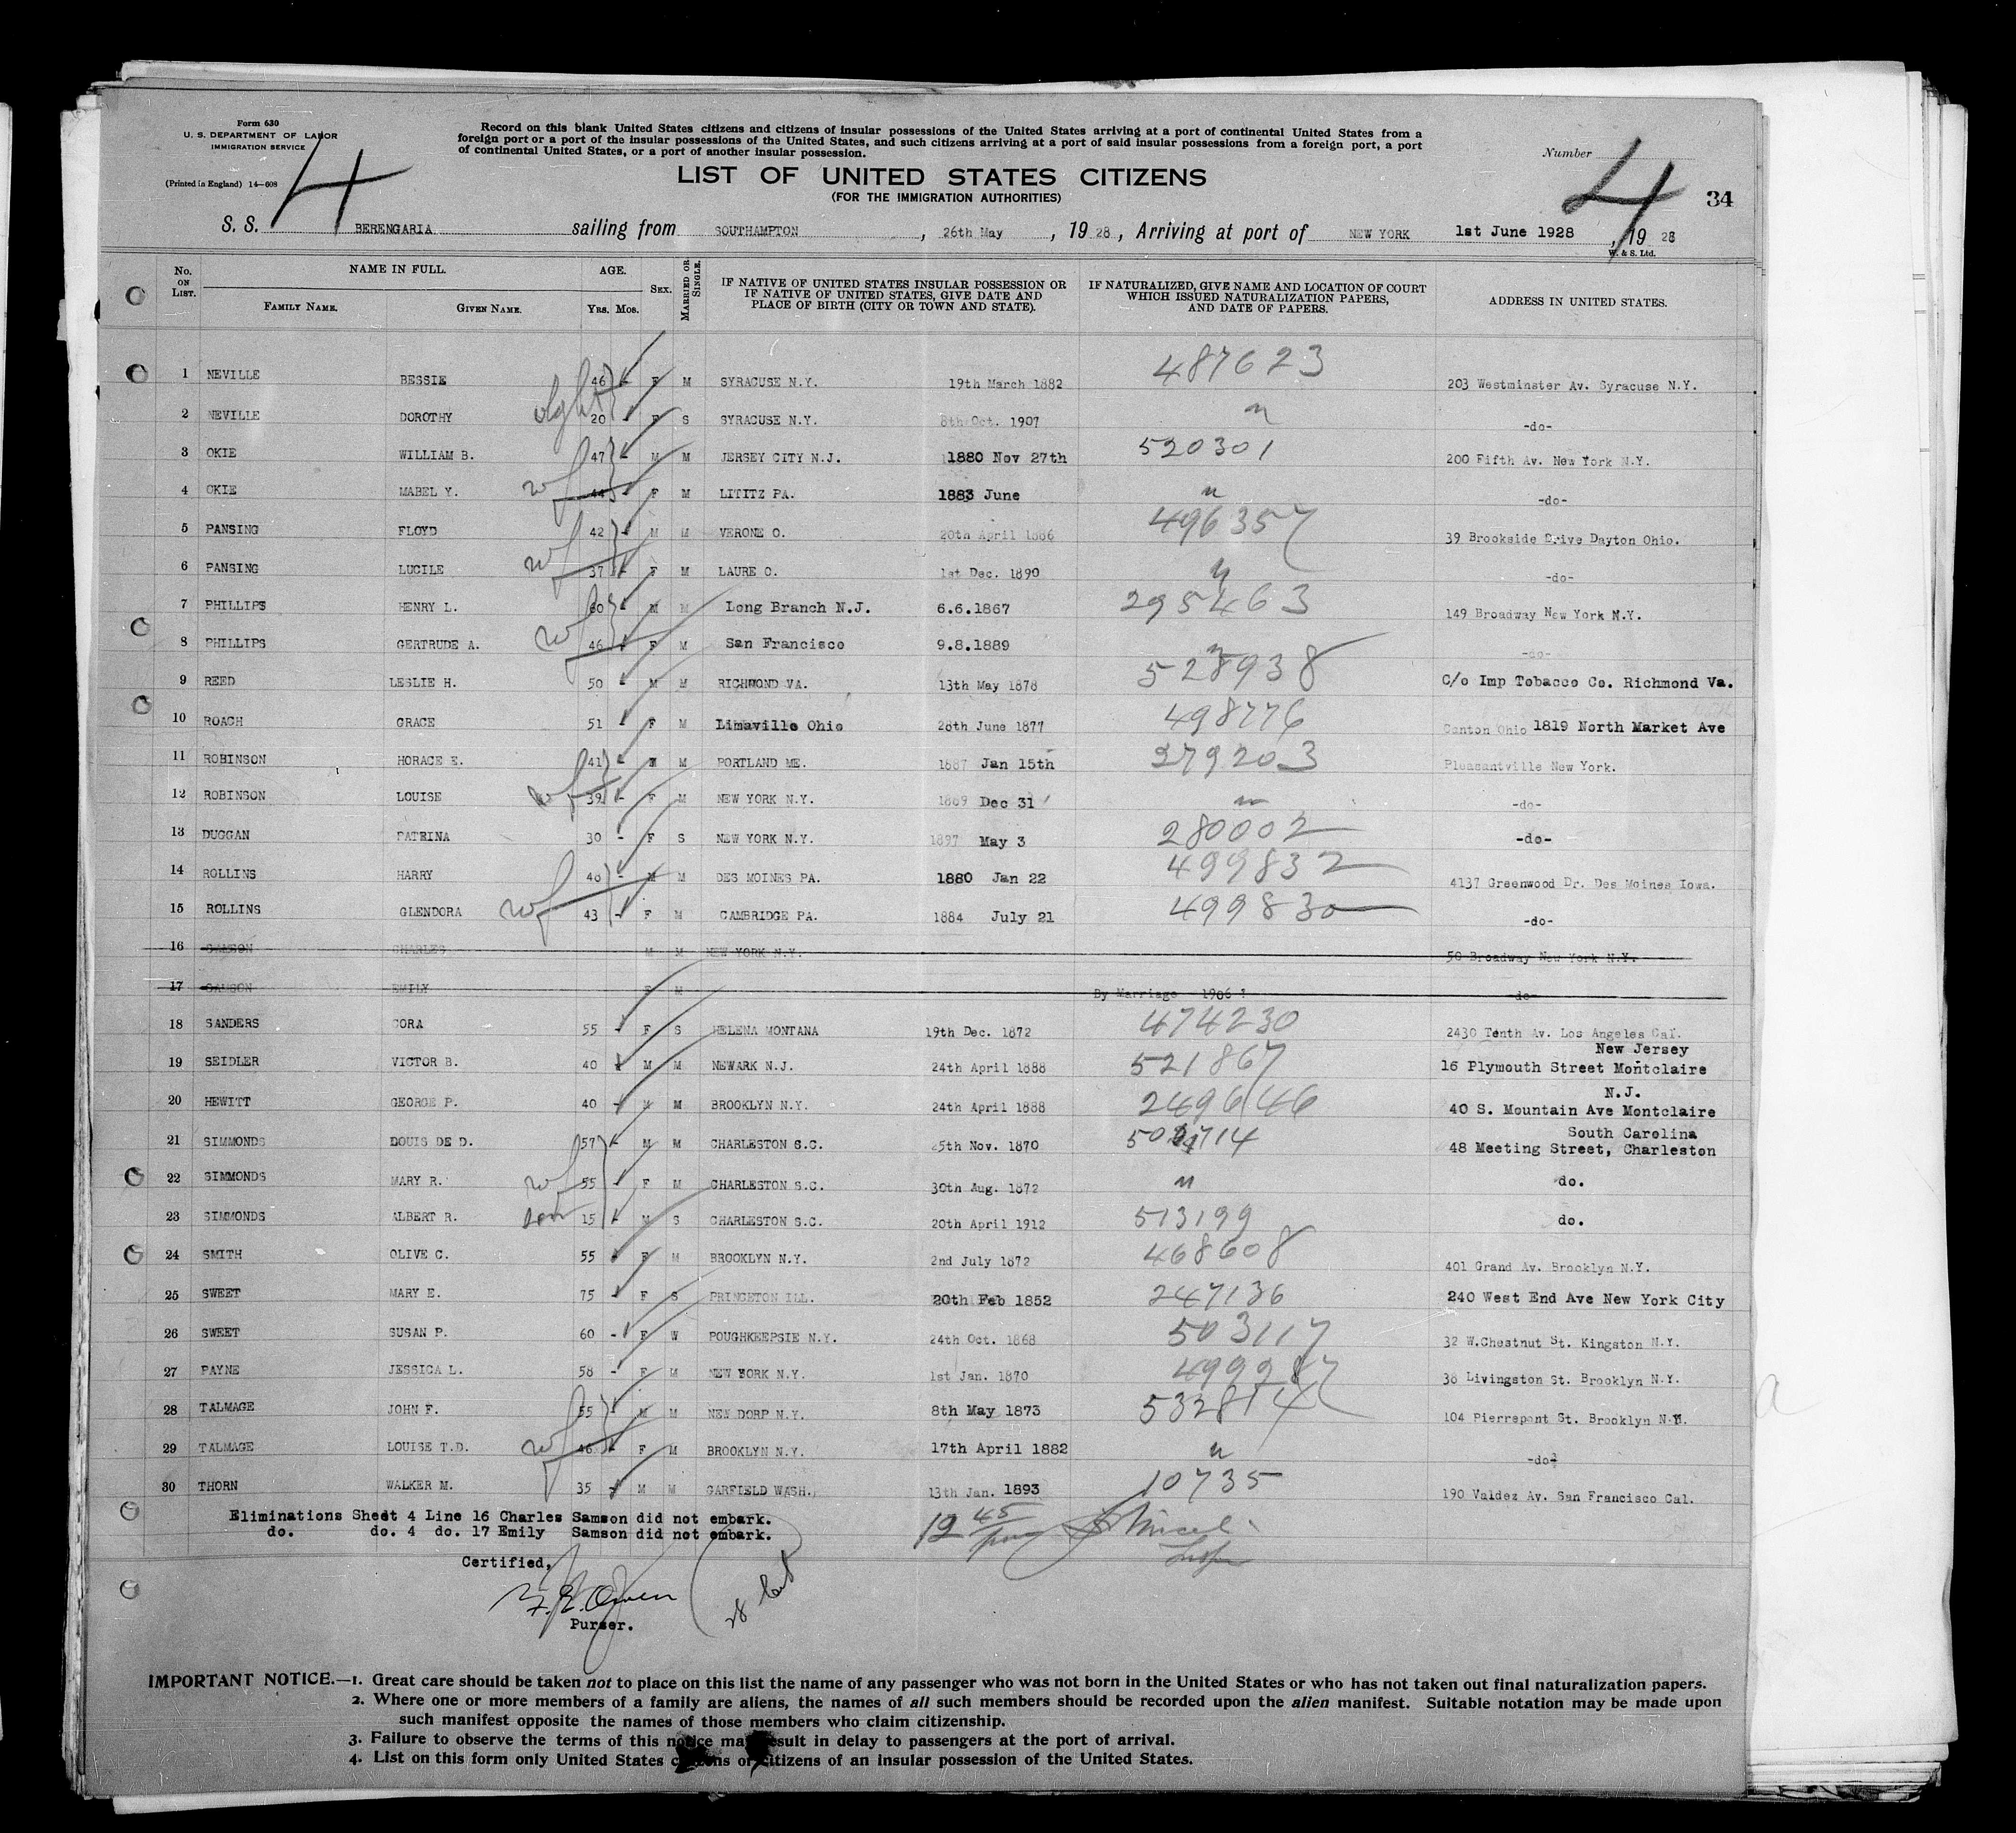 Form 630
U. S. DEPARTMENT OF LABOR
IMMIGRATION SERVICE
(Printed in England) 14—608
Record on this blank United States citizens and citizens of insular possessions of the United States arriving at a port of continental United States from a
foreign port or a port of the insular possessions of the United States, and such citizens arriving at a port of said insular possessions from a foreign port, a port
of continental United States, or a port of another insular possession.
Number
4
4
34
LIST OF UNITED STATES CITIZENS
(FOR THE IMMIGRATION AUTHORITIES)
S. S. BERENGARIA sailing from SOUTHAMPTON, 26th May, 19 28, Arriving at port of NEW YORK 1st June 1928, 19 28
W. & S. Ltd.
No. ON LIST. NAME IN FULL. FAMILY NAME. GIVEN NAME. AGE. Yrs. Mos. SEX. MARRIED OR SINGLE. IF NATIVE OF UNITED STATES INSULAR POSSESSION OR IF NATIVE OF UNITED STATES, GIVE DATE AND PLACE OF BIRTH (CITY OR TOWN AND STATE). IF NATURALIZED, GIVE NAME AND LOCATION OF COURT WHICH ISSUED NATURALIZATION PAPERS, AND DATE OF PAPERS. ADDRESS IN UNITED STATES.
1 NEVILLE BESSIE 46 - F M SYRACUSE N.Y. 19th March 1882 487623 203 Westminster Av. Syracuse N.Y.
2 NEVILLE DOROTHY 20 - F S SYRACUSE N.Y. 8th Oct. 1907 " -do-
3 OKIE WILLIAM B. 47 - M M JERSEY CITY N.J. 1880 Nov 27th 520301 200 Fifth Av. New York N.Y.
4 OKIE MABEL Y. 44 - F M LITITZ PA. 1883 June " -do-
5 PANSING FLOYD 42 - M M VERONE O. 20th April 1886 496357 39 Brookside Drive Dayton Ohio.
6 PANSING LUCILE 37 - F M LAURE O. 1st Dec. 1890 " -do-
7 PHILLIPS HENRY L. 60 - M M Long Branch N.J. 6.6.1867 295463 149 Broadway New York N.Y.
8 PHILLIPS GERTRUDE A. 46 - F M San Francisco 9.8.1889 " -do-
9 REED LESLIE H. 50 - M M RICHMOND VA. 13th May 1878 528938 C/o Imp Tobacco Co. Richmond Va.
10 ROACH GRACE 51 - F M Limaville Ohio 28th June 1877 498776 Canton Ohio 1819 North Market Ave
11 ROBINSON HORACE E. 41 - M M PORTLAND ME. 1887 Jan 15th 279203 Pleasantville New York.
12 ROBINSON LOUISE 39 - F M NEW YORK N.Y. 1889 Dec 31 " -do-
13 DUGGAN PATRINA 30 - F S NEW YORK N.Y. 1897 May 3 280002 -do-
14 ROLLINS HARRY 48 - M M DES MOINES PA. 1880 Jan 22 499832 4137 Greenwood Dr. Des Moines Iowa.
15 ROLLINS GLENDORA 43 - F M CAMBRIDGE PA. 1884 July 21 499830 -do-
16 SAMSON CHARLES M M NEW YORK N.Y. 50 Broadway New York N.Y.
17 SAMSON EMILY F M By Marriage 1906 -do-
18 SANDERS CORA 55 - F S HELENA MONTANA 19th Dec. 1872 474230 2430 Tenth Av. Los Angeles Cal.
New Jersey
19 SEIDLER VICTOR B. 40 - M M NEWARK N.J. 24th April 1888 521867 16 Plymouth Street Montclaire
N.J.
20 HEWITT GEORGE P. 40 - M M BROOKLYN N.Y. 24th April 1888 249646 40 S. Mountain Ave Montclaire
South Carolina
21 SIMMONDS DOUIS DE D. 57 - M M CHARLESTON S.C. 25th Nov. 1870 48 Meeting Street, Charleston
22 SIMMONDS MARY R. 55 - F M CHARLESTON S.C. 30th Aug. 1872 " do.
23 SIMMONDS ALBERT R. 15 - M S CHARLESTON S.C. 20th April 1912 513199 do.
24 SMITH OLIVE C. 55 - F M BROOKLYN N.Y. 2nd July 1872 468608 401 Grand Av. Brooklyn N.Y.
25 SWEET MARY E. 75 - F S PRINCETON ILL. 20th Feb 1852 247136 240 West End Ave New York City
26 SWEET SUSAN P. 60 - F W POUGHKEEPSIE N.Y. 24th Oct. 1868 503117 32 W.Chestnut St. Kingston N.Y.
27 PAYNE JESSICA L. 58 - F M NEW YORK N.Y. 1st Jan. 1870 499987 38 Livingston St. Brooklyn N.Y.
28 TALMAGE JOHN F. 55 - M M NEW DORP N.Y. 8th May 1873 532814 104 Pierrepont St. Brooklyn N.Y.
29 TALMAGE LOUISE T.D. 46 - F M BROOKLYN N.Y. 17th April 1882 " -do-
30 THORN WALKER M. 35 - M M GARFIELD WASH. 13th Jan. 1893 10735 190 Valdez Av. San Francisco Cal.
Eliminations Sheet 4 Line 16 Charles Samson did not embark.
do. do. 4 do. 17 Emily Samson did not embark.
12 45
Certified,
Owen
Purser.
IMPORTANT NOTICE.—1. Great care should be taken not to place on this list the name of any passenger who was not born in the United States or who has not taken out final naturalization papers.
2. Where one or more members of a family are aliens, the names of all such members should be recorded upon the alien manifest. Suitable notation may be made upon
such manifest opposite the names of those members who claim citizenship.
3. Failure to observe the terms of this notice may result in delay to passengers at the port of arrival.
4. List on this form only United States citizens or citizens of an insular possession of the United States.